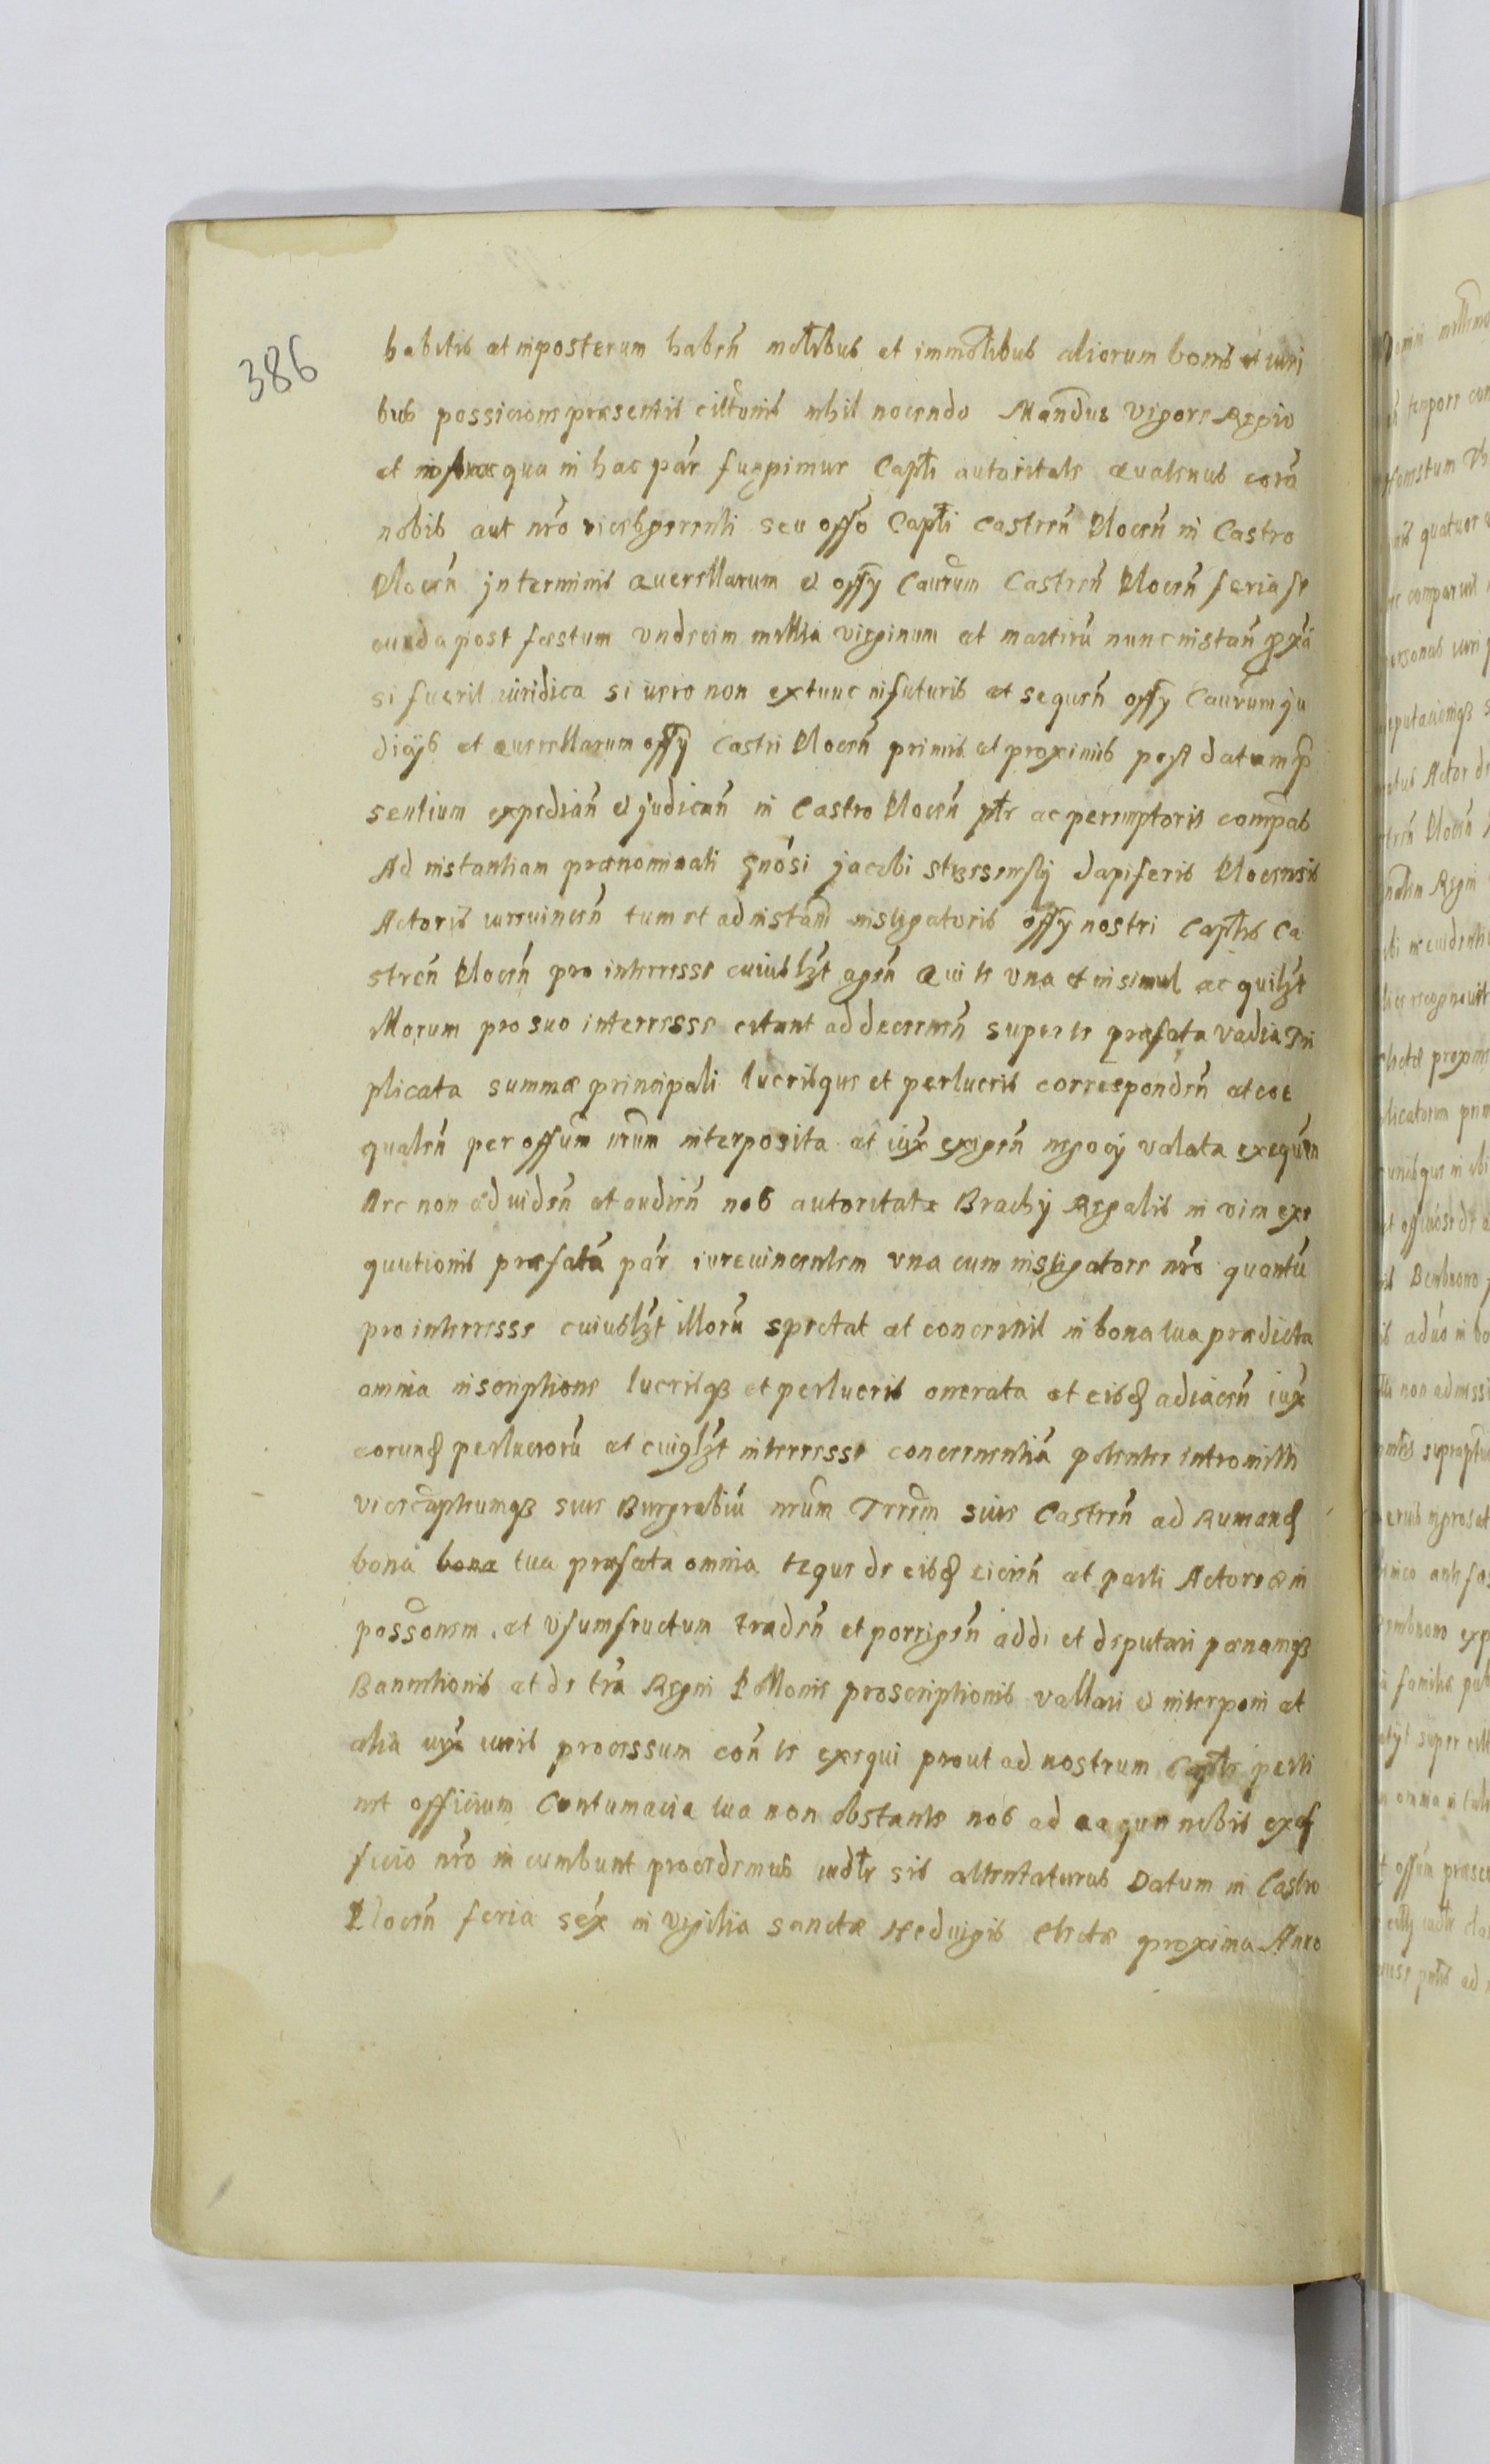 386
habitis et inposterum haben̄ mobilibus et immobilibus aliorum bonis et iuri
bus possicione præsentis cittonis nihil nocendo Mandus vigore Regio
et nostræ qua in hac par̄ fungimur Capłi autoritate Quatenus corā
nobis aut nr̄o vicesgerenti seu offō Capłi Castren̄ Plocen̄ in Castro
Plocen̄ jn terminis Querellarum et offy Caurum Castren̄ Plocen̄ feria se
cunda post festum vndecim millia virginum et martirū nunc instan̄ pxa
si fuerit iuridica si uero non extunc in futuris et sequen̄ offy Caurum ju
dicijs et querellarum offy Castri Plocen̄ primis et proximis post datam p
sentium expedian̄ et judican̄ in Castro Plocen̄ płr ac peremptorie compas
Ad instantiam prænominati Gnosi jacobi dapiferis Plocensis
Actoris iureuincen̄ tum et ad instam instigatoris offy nostri Caplis Ca
stren̄ Plocen̄ pro interresse cuiuslzt agen̄ Qui te vna et insimul ac quilzt
illorum pro suo interresse citant ad decernen̄ super te præfata vadia Tri
plicata summæ principali lucrisque et perlucris coresponden̄ et coe
qualen̄ per offum nrum interposita et iux exigen̄ negocy valata exequen
Nec non ad viden̄ et audien̄ nos autoritate Brachy Regalis in vim exe
quutionis præfatā par̄ iureuincentem vna cum instigatore nr̄o quantū
pro interresse cuiuslzt illorū spectat et concernit in bona tua prædicta
omnia inscriptione lucrisqз et perlucris onerata et eisd adiacen̄ iux
eorund perlucrorū et cuiqlzt interresse concernentiā potenter intromitti
vicecapteumqз siue Burgrabiū nrum Trrem siue Castren̄ ad Rumand
bona bona tua præfata omnia teque de eisd eicien̄ et parti Actoreæ in
possonem et vsumfructum traden̄ et porrigen̄ addi et deputari pœnamqз
Bannitionis et de trā Regni Polloniæ proscriptionis vallari et interponi et
alia iux iuris processum con̄ te exequi prout ad nostrum Caple perti
net officium Contumacia tua non obstante nos ad ea quæ nobis ex of
ficio nr̄o incumbunt procedemus iudłr sis attentaturus Datum in Castro
Plocen̄ feria sex in vigilia sanctæ Heduigis Electæ proxima Anno